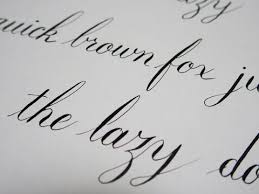 zy
quick brown fox ju
the lazy do